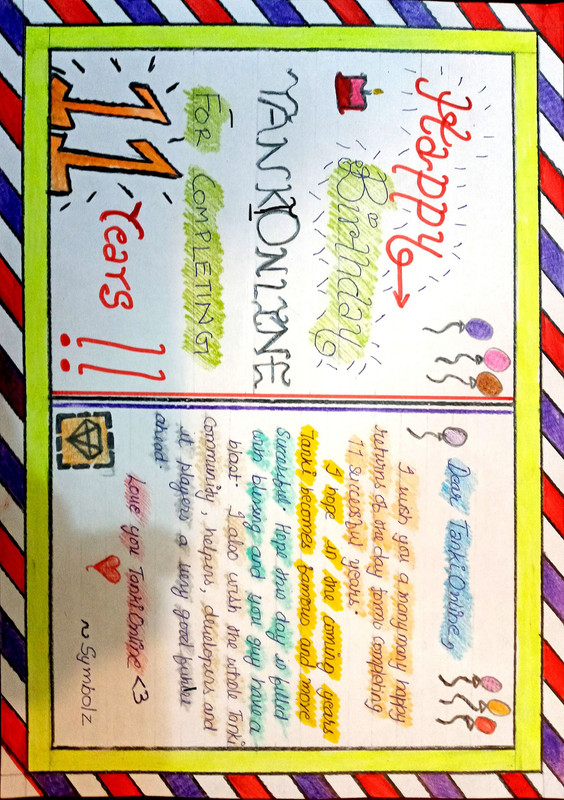 Happy
Birthday
TANKIONLINE
FOR COMPLETING
11
Years !!
Dear TankiOnline,
I wish you a many many happy
returns of the day from competing
11 successful years.
I hope in the coming years
Tanki becomes famous and more
successful. Hope this day is filled
with blessing and you guy have a
blast. I also wish the whole Tanki
Community, helpers, developers and
it players a very good future
ahead.
Love you TankiOnline <3
~Symbolz